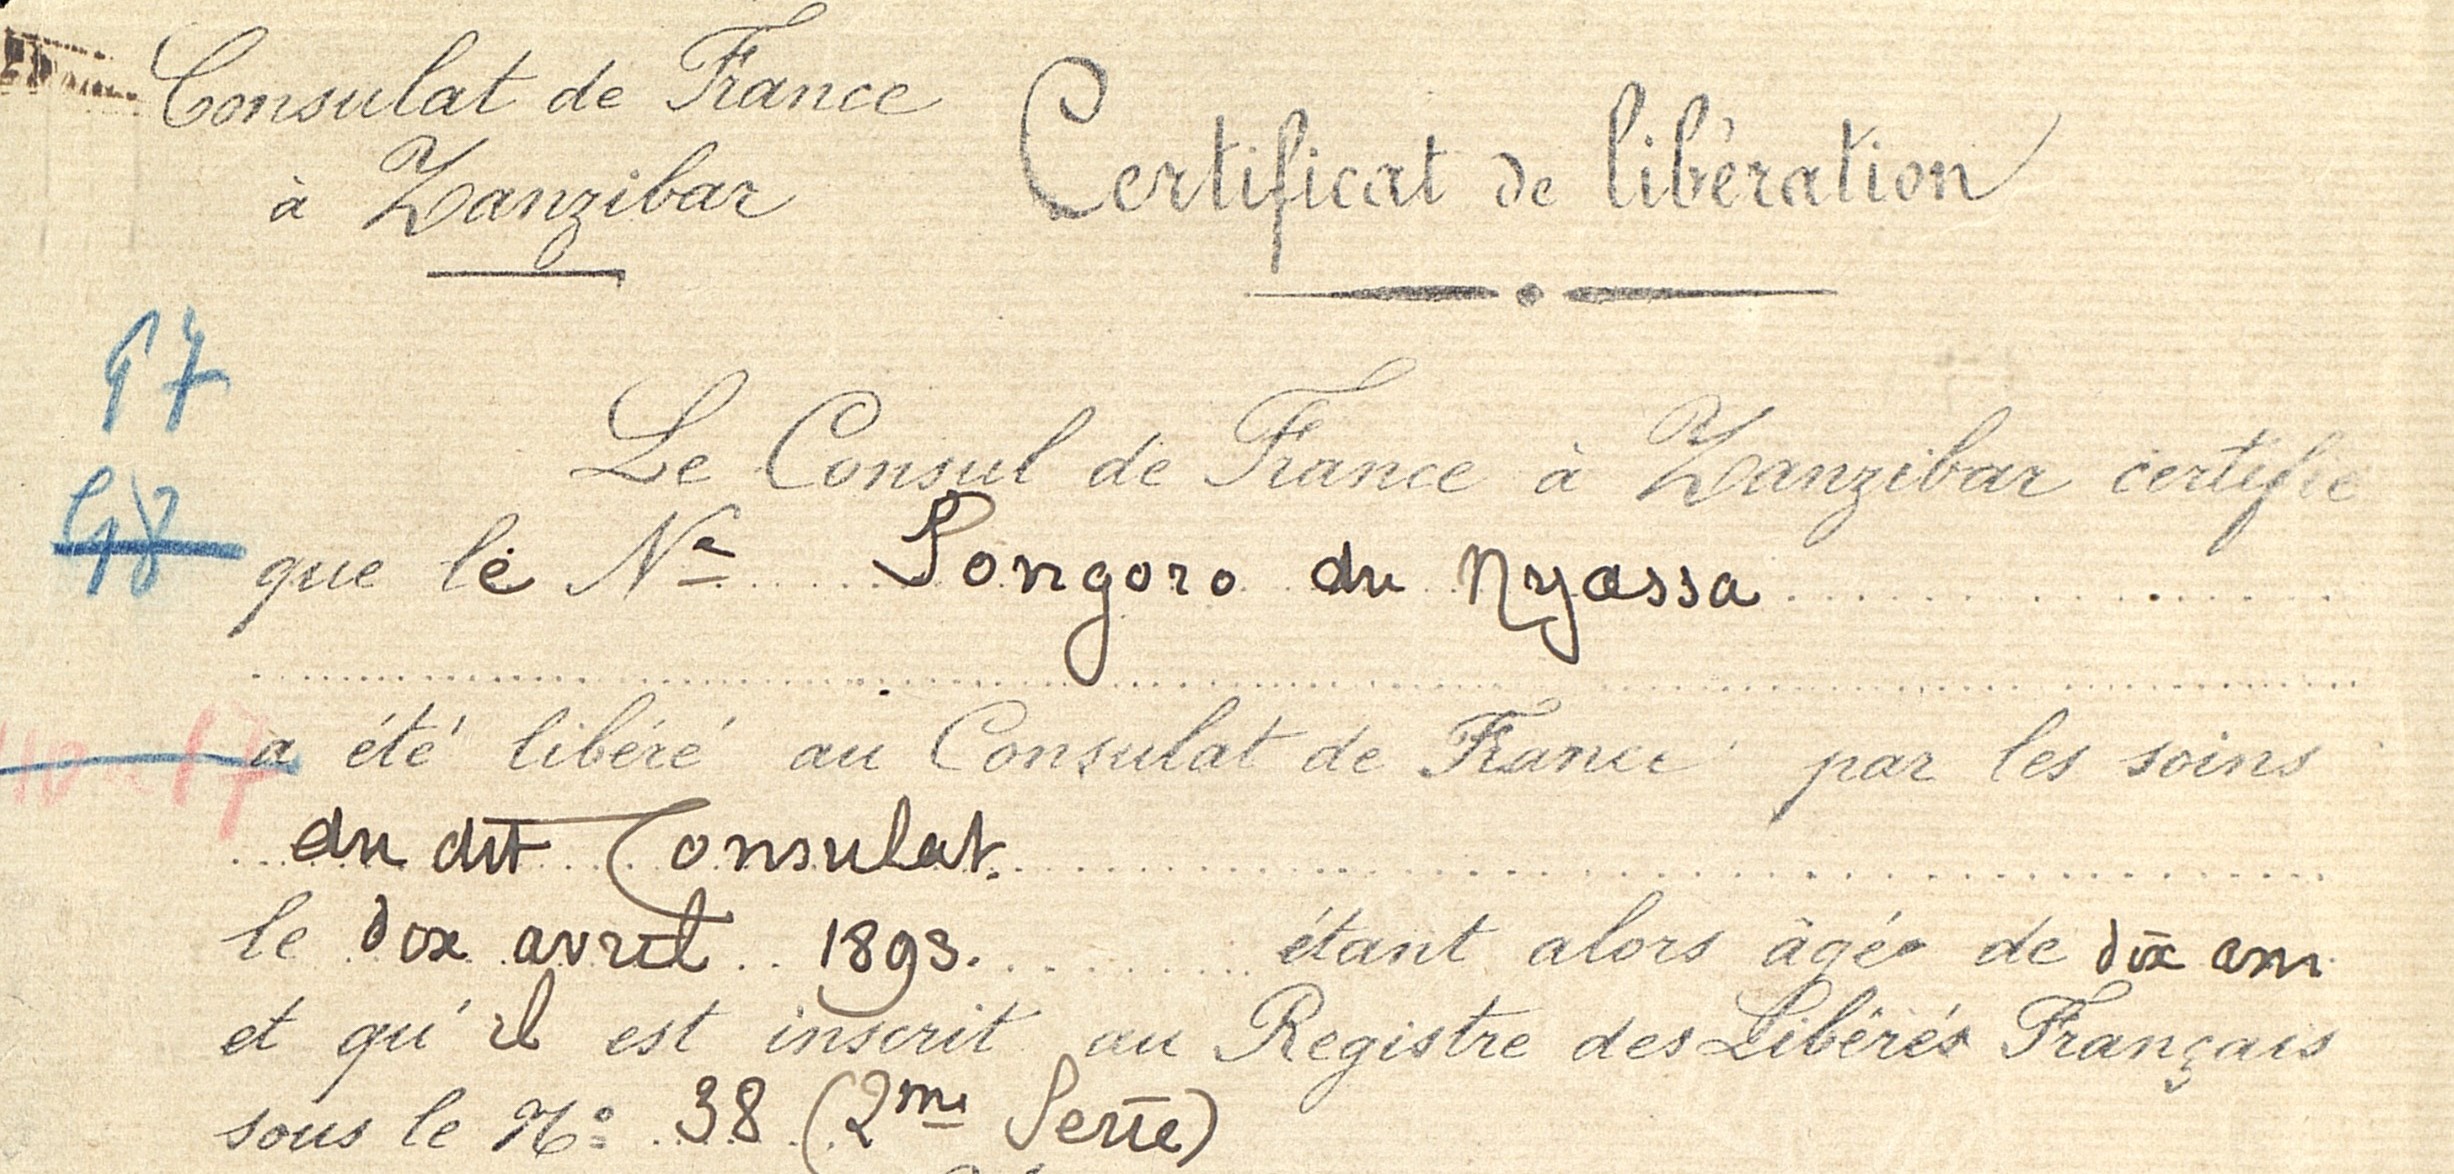 Consulat de France
à Zanzibar
Certificat de libération
97
98
Le Consul de France à Zanzibar certifie
que le Ne Songoro du Nyassa
a été libéré au Consulat de France par les soins
du dit Consulat.
le dix avril 1893. étant alors âgé de dix ans
et qu'il est inscrit au Registre des Libérés Français
sous le No: 38 (2me Serie)